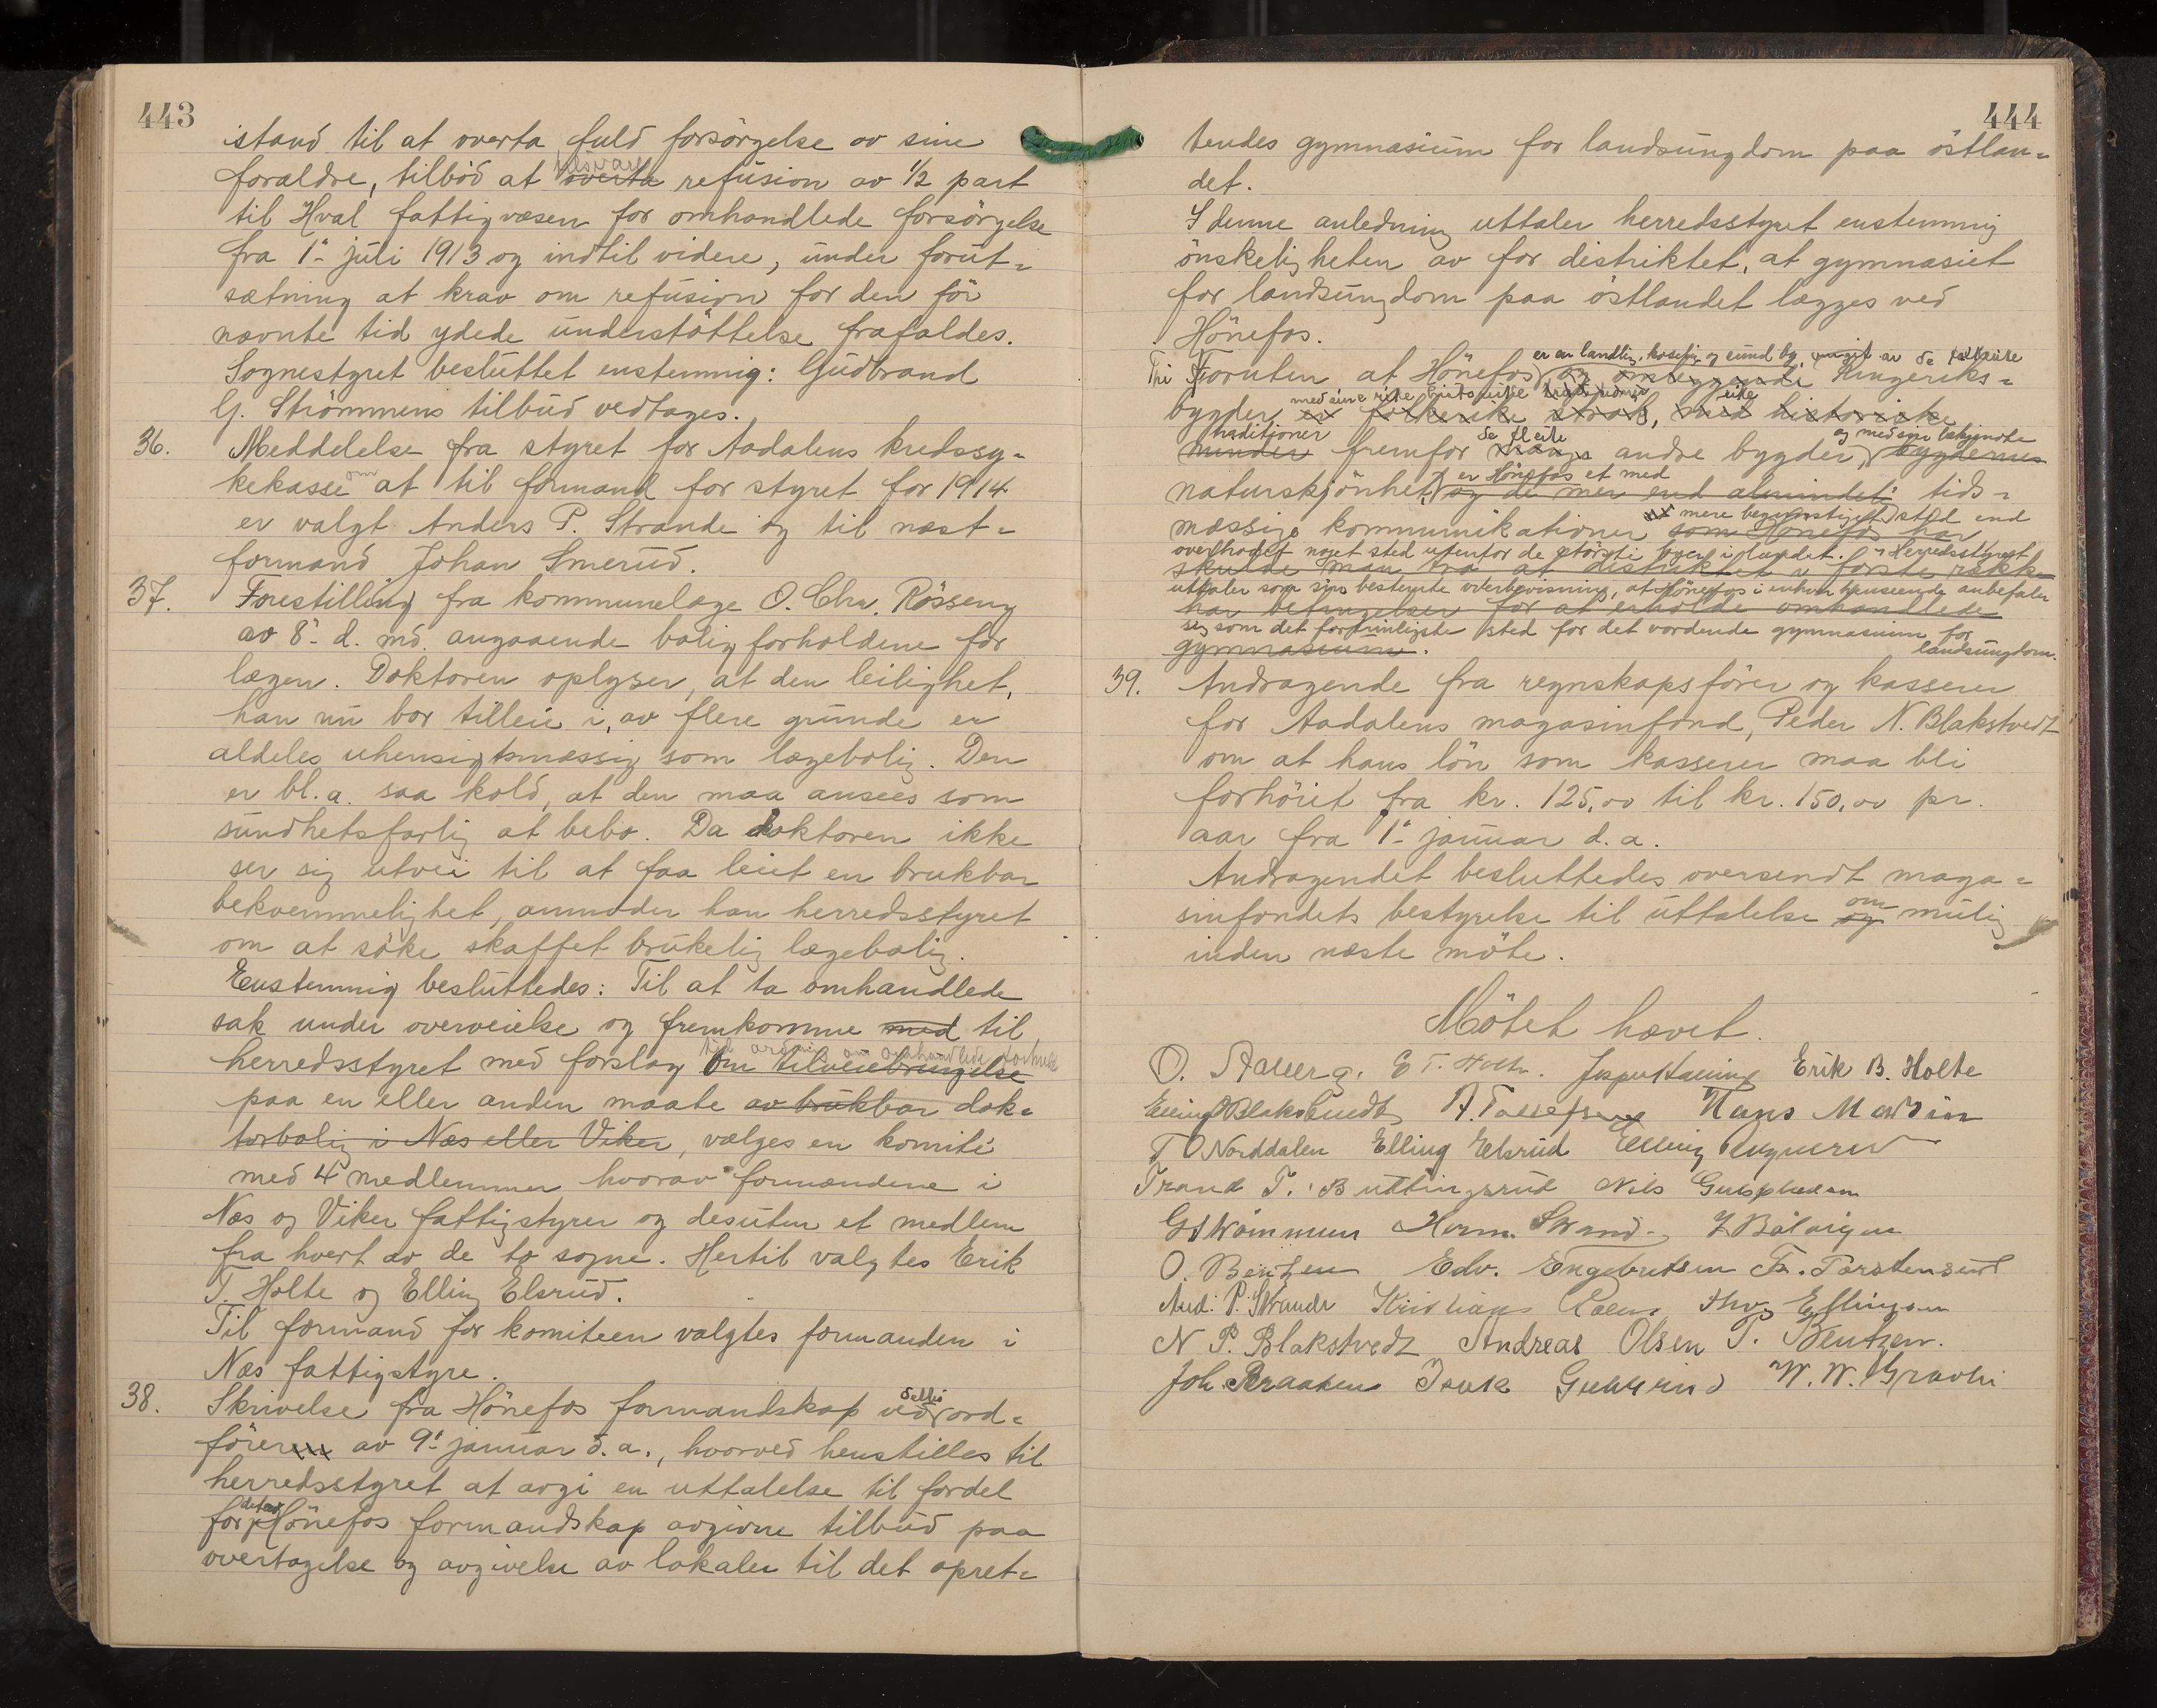 443
istand til at overta fuld forsörgelse av sine
tilsvare
foraldre, tilböd at overta refusion av 1/2 part
til Hval fattigvæsen for omhandlede forsörgelse
fra 1ˢ juli 1913 og indtil videre, under forut=
sætning at krav om refusion for den för
nævnte tid ydede understöttelse frafaldes.
Sognestyret besluttet enstemmig: Gudbrand
G. Strömmens tilbud vedtages.
36. Meddelelse fra styret for Aadalens kredssy=
kekasse om at til formand for styret for 1914
er valgt Anders P. Strande og til næst=
formand Johan Smerud.
37. Forestilling fra kommunelæge O. Chr. Rösseng
av 8ˢ d. md. angaaende boligforholdene for
lægen. Doktoren oplyser, at den leilighet,
han nu bor tilleie i, av flere grunde er
aldeles uhensigtsmæssig som lægebolig. Den
er bl. a. saa kold, at den maa ansees som
sundhetsfarlig at bebo. Da doktoren ikke
ser sig utvei til at faa leiet en brukbar
bekvemmelighet, anmoder han herredsstyret
om at söke skaffet brukelig lægebolig.
Enstemmig besluttedes: Til at ta omhandlede
sak under overveielse og fremkomme med til
ordning av omhandlede
herredsstyret med forslag om tilveiebringelse
paa en eller anden maate av brukbar dok=
torbolig i Næs eller Viker, vælges en komité
med 4 medlemmer hvorav formændene i
Næs og Viker fattigstyrer og desuten et medlem
fra hvert av de to sogne. Hertil valgtes Erik
T. Holte og Elling Elsrud.
Til formand for komiteen valgtes formanden i
Næs fattigstyre.
38. Skrivelse fra Hönefos formandskap ved ord=
föreren av 9ˢ januar d. a., hvorved henstilles til
herredsstyret at avgi en uttalelse til fordel
for det av Hönefos formandskap avgivne tilbud paa
overtagelse og avgivelse av lokaler til det opret=
444
tendes gymnasium for landsungdom paa östlan=
det.
I denne anledning uttaler herredsstyret enstemmig
önskeligheten av for distriktet, at gymnasiet
for landsungdom paa östlandet lægges ved
Hönefos.
er en landlig, koselig og sund by, av de
Thi Foruten at Hönefos og omliggende Ringeriks=
med sine rike rike
bygder er folkerike strök, med historiske
traditioner de fleste og med sin bekjendte
minder fremfor mange andre bygder, bygdernes
er Hönefos et med
naturskjönhet, og de mer end almindel. tids=
mere begunstiget sted end
mæssige kommunikationer som Hönefos har
overhodet noget sted utenfor de störste byer i landet. Herredsstyret
skulde man tro at distriktet i förste række
uttaler som sin bestemte overbevisning, at Hönefos i enhver henseende anbefaler
har betingelser for at erholde omhandlede
sig som det fortrinligste sted for det vordende gymnasium for
gymnasium. landsungdom.
39. Andragende fra regnskapsförer og kasserer
for Aadalens magasinfond, Peder N. Blakstvedt
om at hans lön som kasserer maa bli
forhöiet fra kr. 125,00 til kr. 150,00 pr.
aar fra 1ˢ januar d. a.
Andragendet besluttedes oversendt maga=
sinfondets bestyrelse til uttalelse og om mulig
inden næste möte.
Mötet hævet.
E T. Holte. Erik B. Holte
Hans Martin
T O Norddalen Elling Elsrud Elling
Trand T. Buttingsrud Nils
G Strömmen Herm. Strand
O. Bentzen Edv. Engebretsen Fr. Torstensrud
And. P. Strande Ellingsen
N P. Blakstvedt Andreas Olsen P. Bentzen.
Joh. Braaten W. W. Gravli